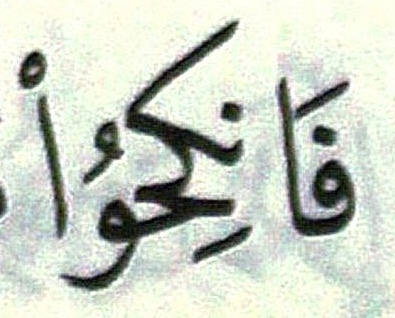 فَانكِحُواْ